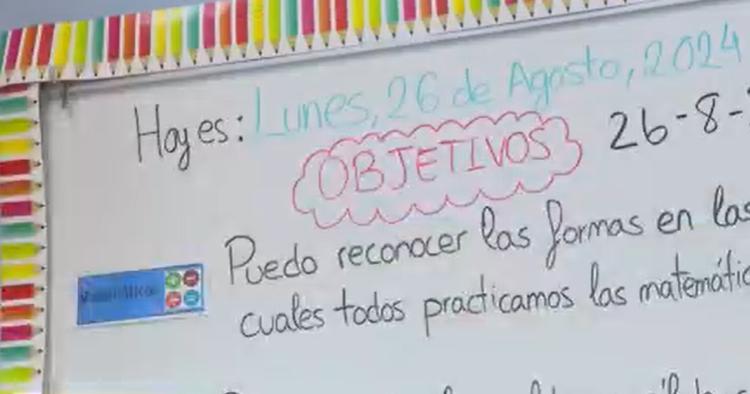 Hoy es: Lunes, 26 de Agosto, 2024
OBJETIVOS
26-8-
Puedo reconocer las formas en las
cuales todos practicamos las matemátic